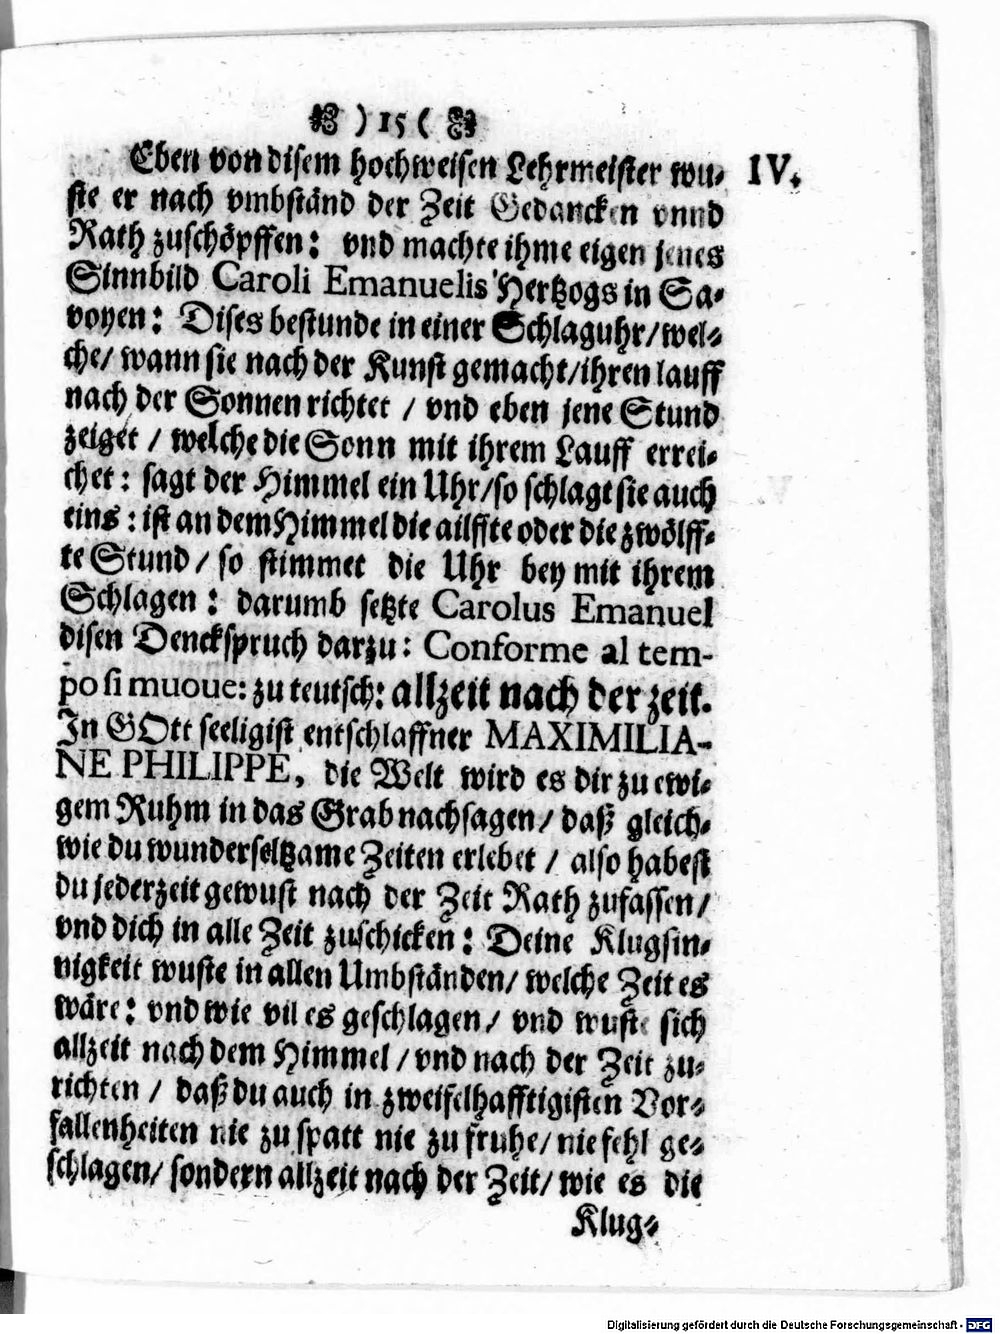 ) 15 (
Eben von disem hochweisen Lehrmeister wu- IV.
ste er nach vmbständ der Zeit Gedancken vnnd
Rath zuschöpffen: vnd machte ihme eigen jenes
Sinnbild Caroli Emanuelis Hertzogs in Sa-
voyen: Dises bestunde in einer Schlaguhr/wel-
che/ wann sie nach der Kunst gemacht/ihren lauff
nach der Sonnen richtet / vnd eben jene Stund
zeiget / welche die Sonn mit ihrem Lauff errei-
chet: sagt der Himmel ein Uhr/so schlagt sie auch
eins: ist an dem Himmel die ailffte oder die zwölff-
te Stund / so stimmet die Uhr bey mit ihrem
Schlagen: darumb setzte Carolus Emanuel
disen Denckspruch darzu: Conforme al tem-
po si muove: zu teutsch: allzeit nach der zeit.
In GOtt seeligist entschlaffner MAXIMILIA-
NE PHILIPPE, die Welt wird es dir zu ewi-
gem Ruhm in das Grab nachsagen/ daß gleich-
wie du wunderseltzame Zeiten erlebet / also habest
du jederzeit gewust nach der Zeit Rath zufassen/
vnd dich in alle Zeit zuschicken: Deine Klugsin-
nigkeit wuste in allen Umbständen/ welche Zeit es
wäre: vnd wie vil es geschlagen/ vnd wuste sich
allzeit nach dem Himmel / vnd nach der Zeit zu-
richten / daß du auch in zweifelhafftigisten Vor-
fallenheiten nie zu spatt nie zu fruhe/ nie fehl ge-
schlagen/ sondern allzeit nach der Zeit/ wie es die
Klug-
Digitalisierung gefördert durch die Deutsche Forschungsgemeinschaft - DFG